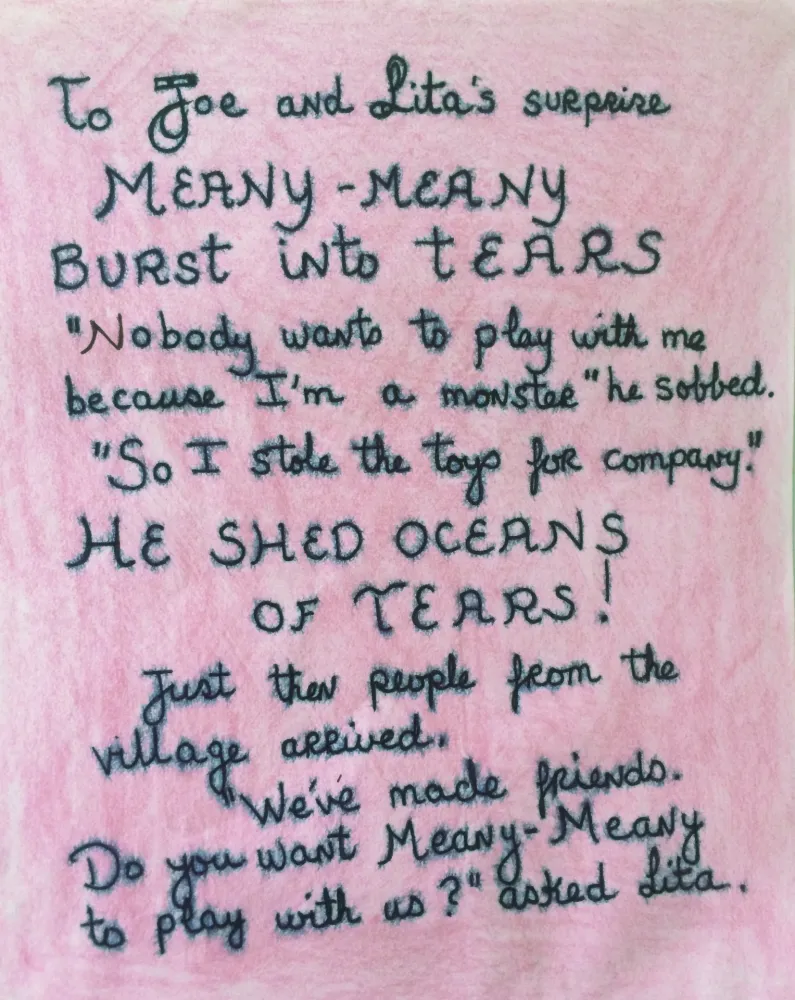 To Joe and Lita's surprise
MEANY-MEANY
BURST into tEARS
"Nobody wants to play with me
because I'm a monster" he sobbed.
"So I stole the toys for company."
HE SHED OCEANS
OF TEARS!
Just then people from the
village arrived.
"We've made friends.
Do you want Meany-Meany
to play with us?" asked Lita.